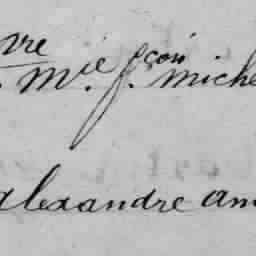 vre
. Mie. fçois Miche
Alexandre am